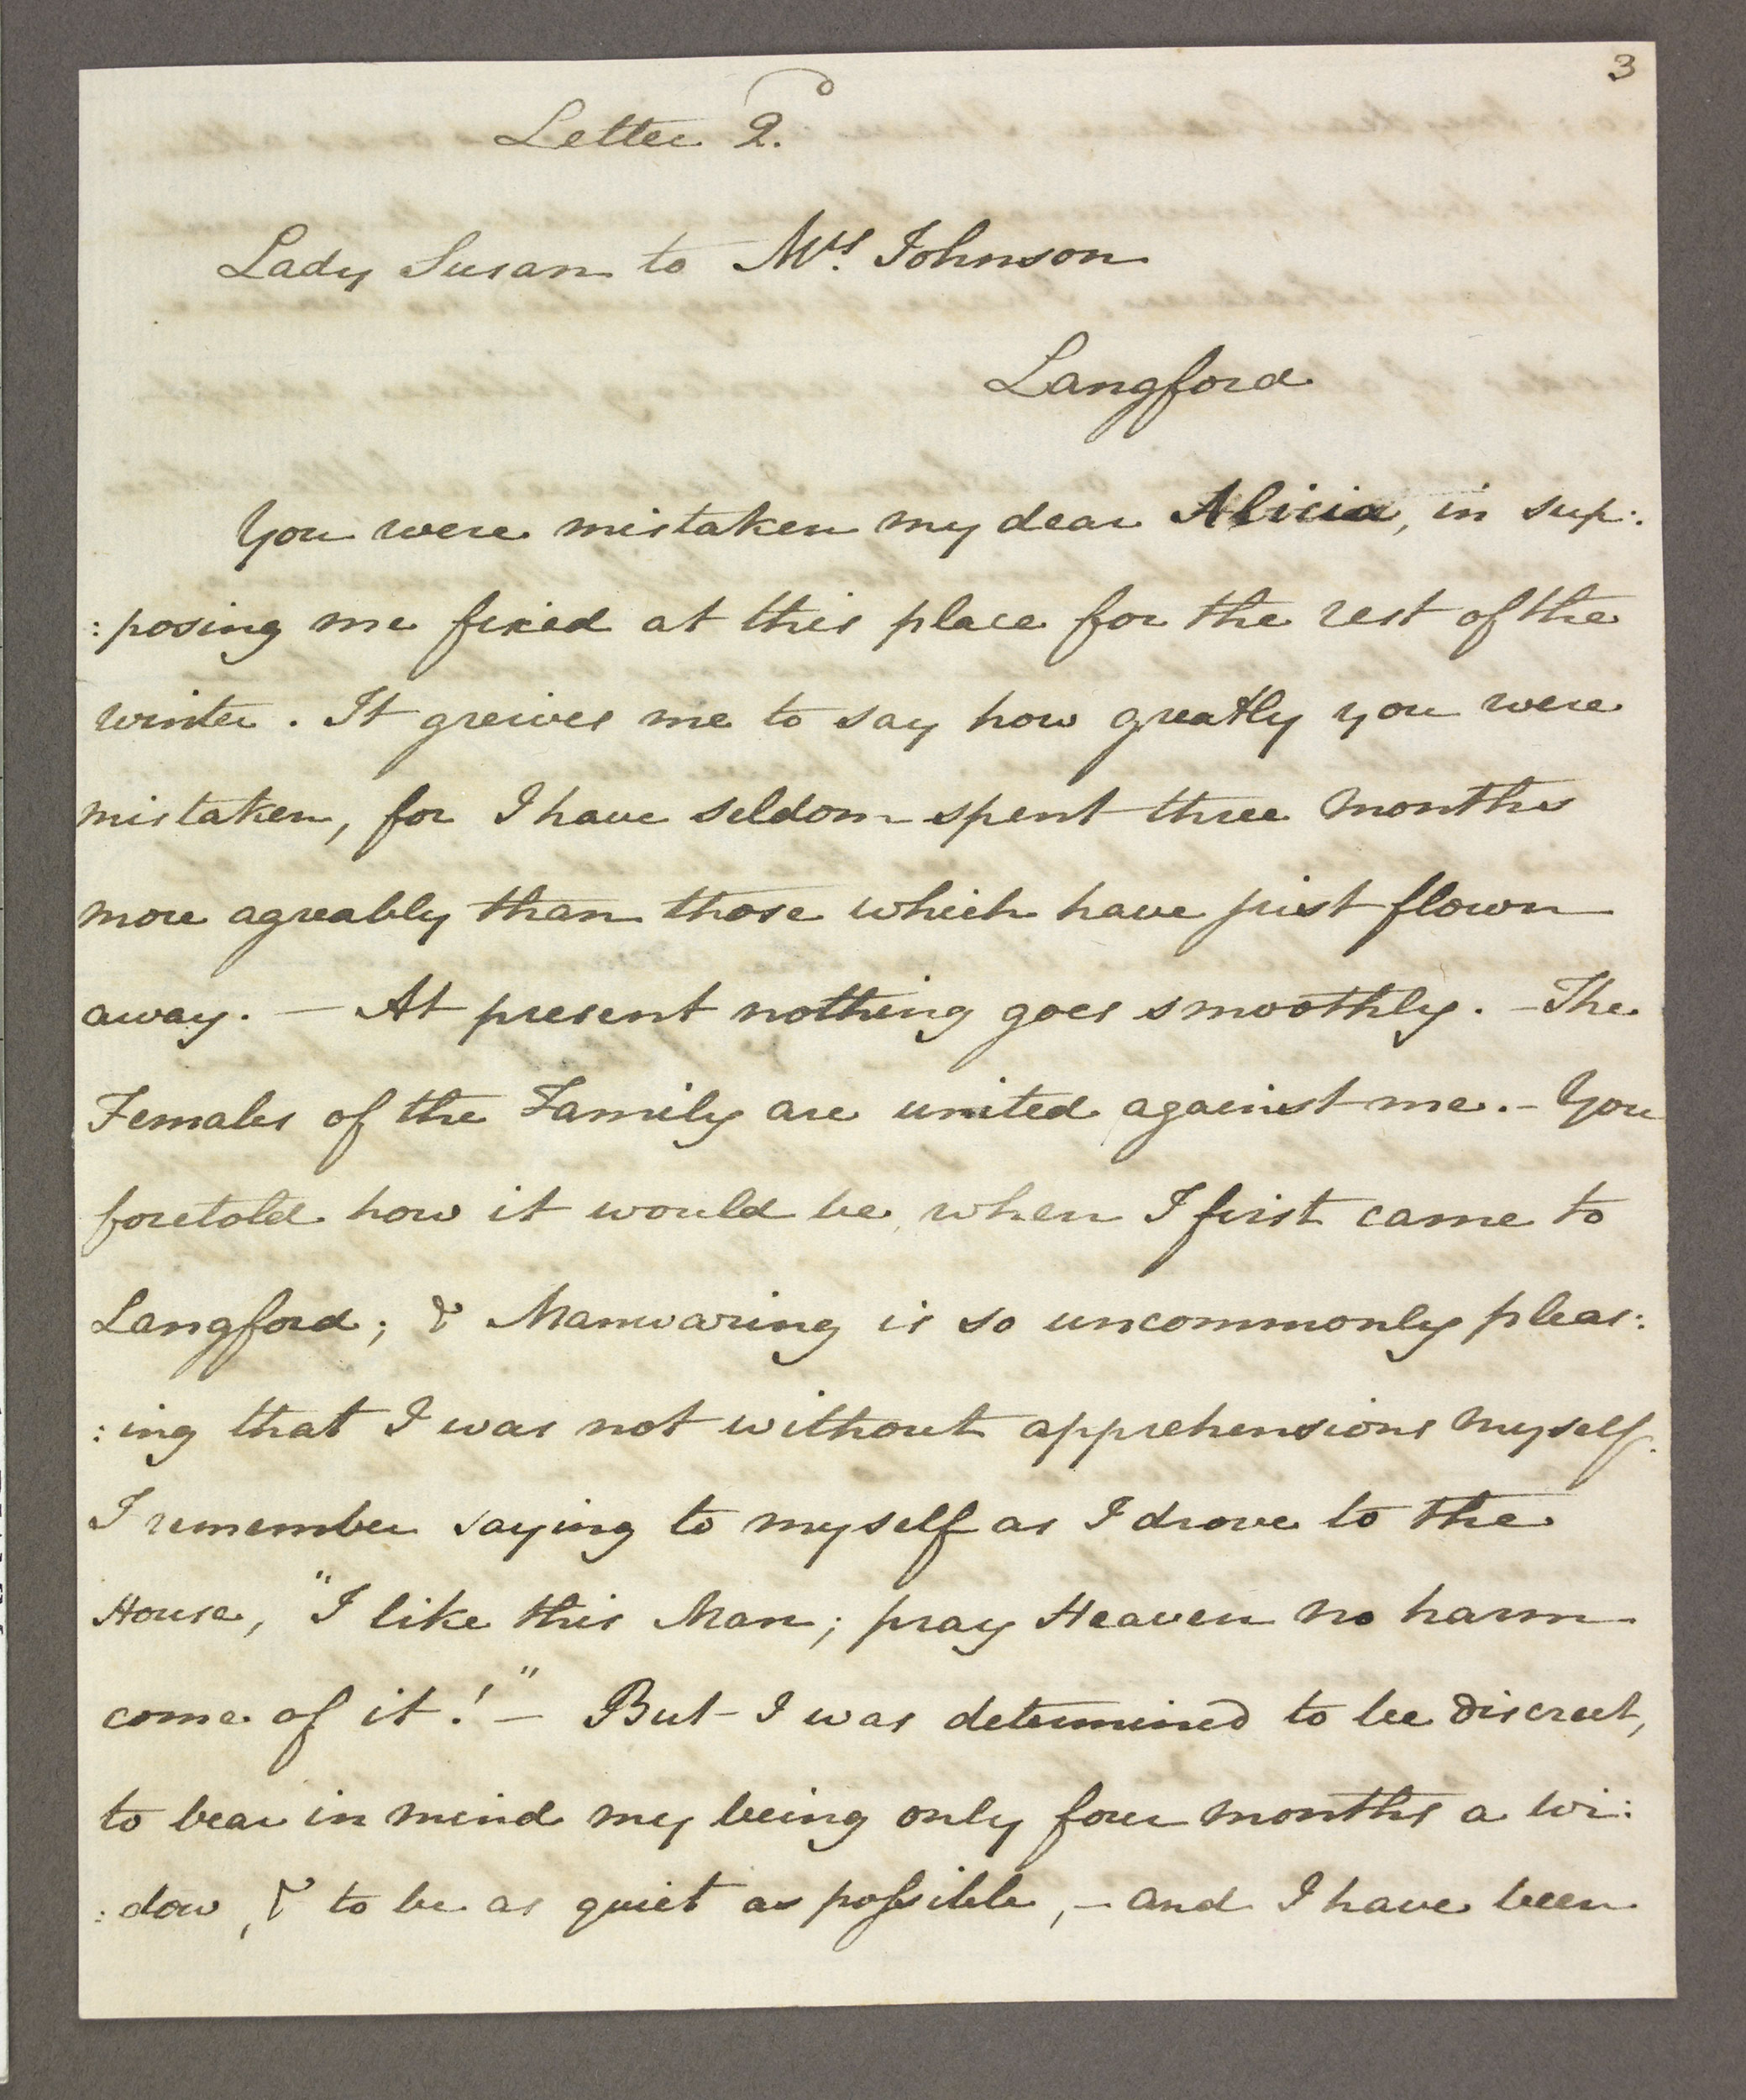 3
Letter 2.
Lady Susan to Mrs. Johnson
Langford
You were mistaken my dear Alicia, in sup:
:posing me fixed at this place for the rest of the
winter. It greives me to say how greatly you were
mistaken, for I have seldom spent three months
more agreably than those which have just flown
away. — At present nothing goes smoothly. – The
Females of the Family are united against me. – You
foretold how it would be, when I first came to
Langford; & Manwaring is so uncommonly pleas:
:ing that I was not without apprehensions myself.
I remember saying to myself as I drove to the
House, "I like this Man; pray Heaven no harm
come of it!" – But I was determined to be discreet,
to bear in mind my being only four months a wi:
:dow, & to be as quiet as possible, – and I have been